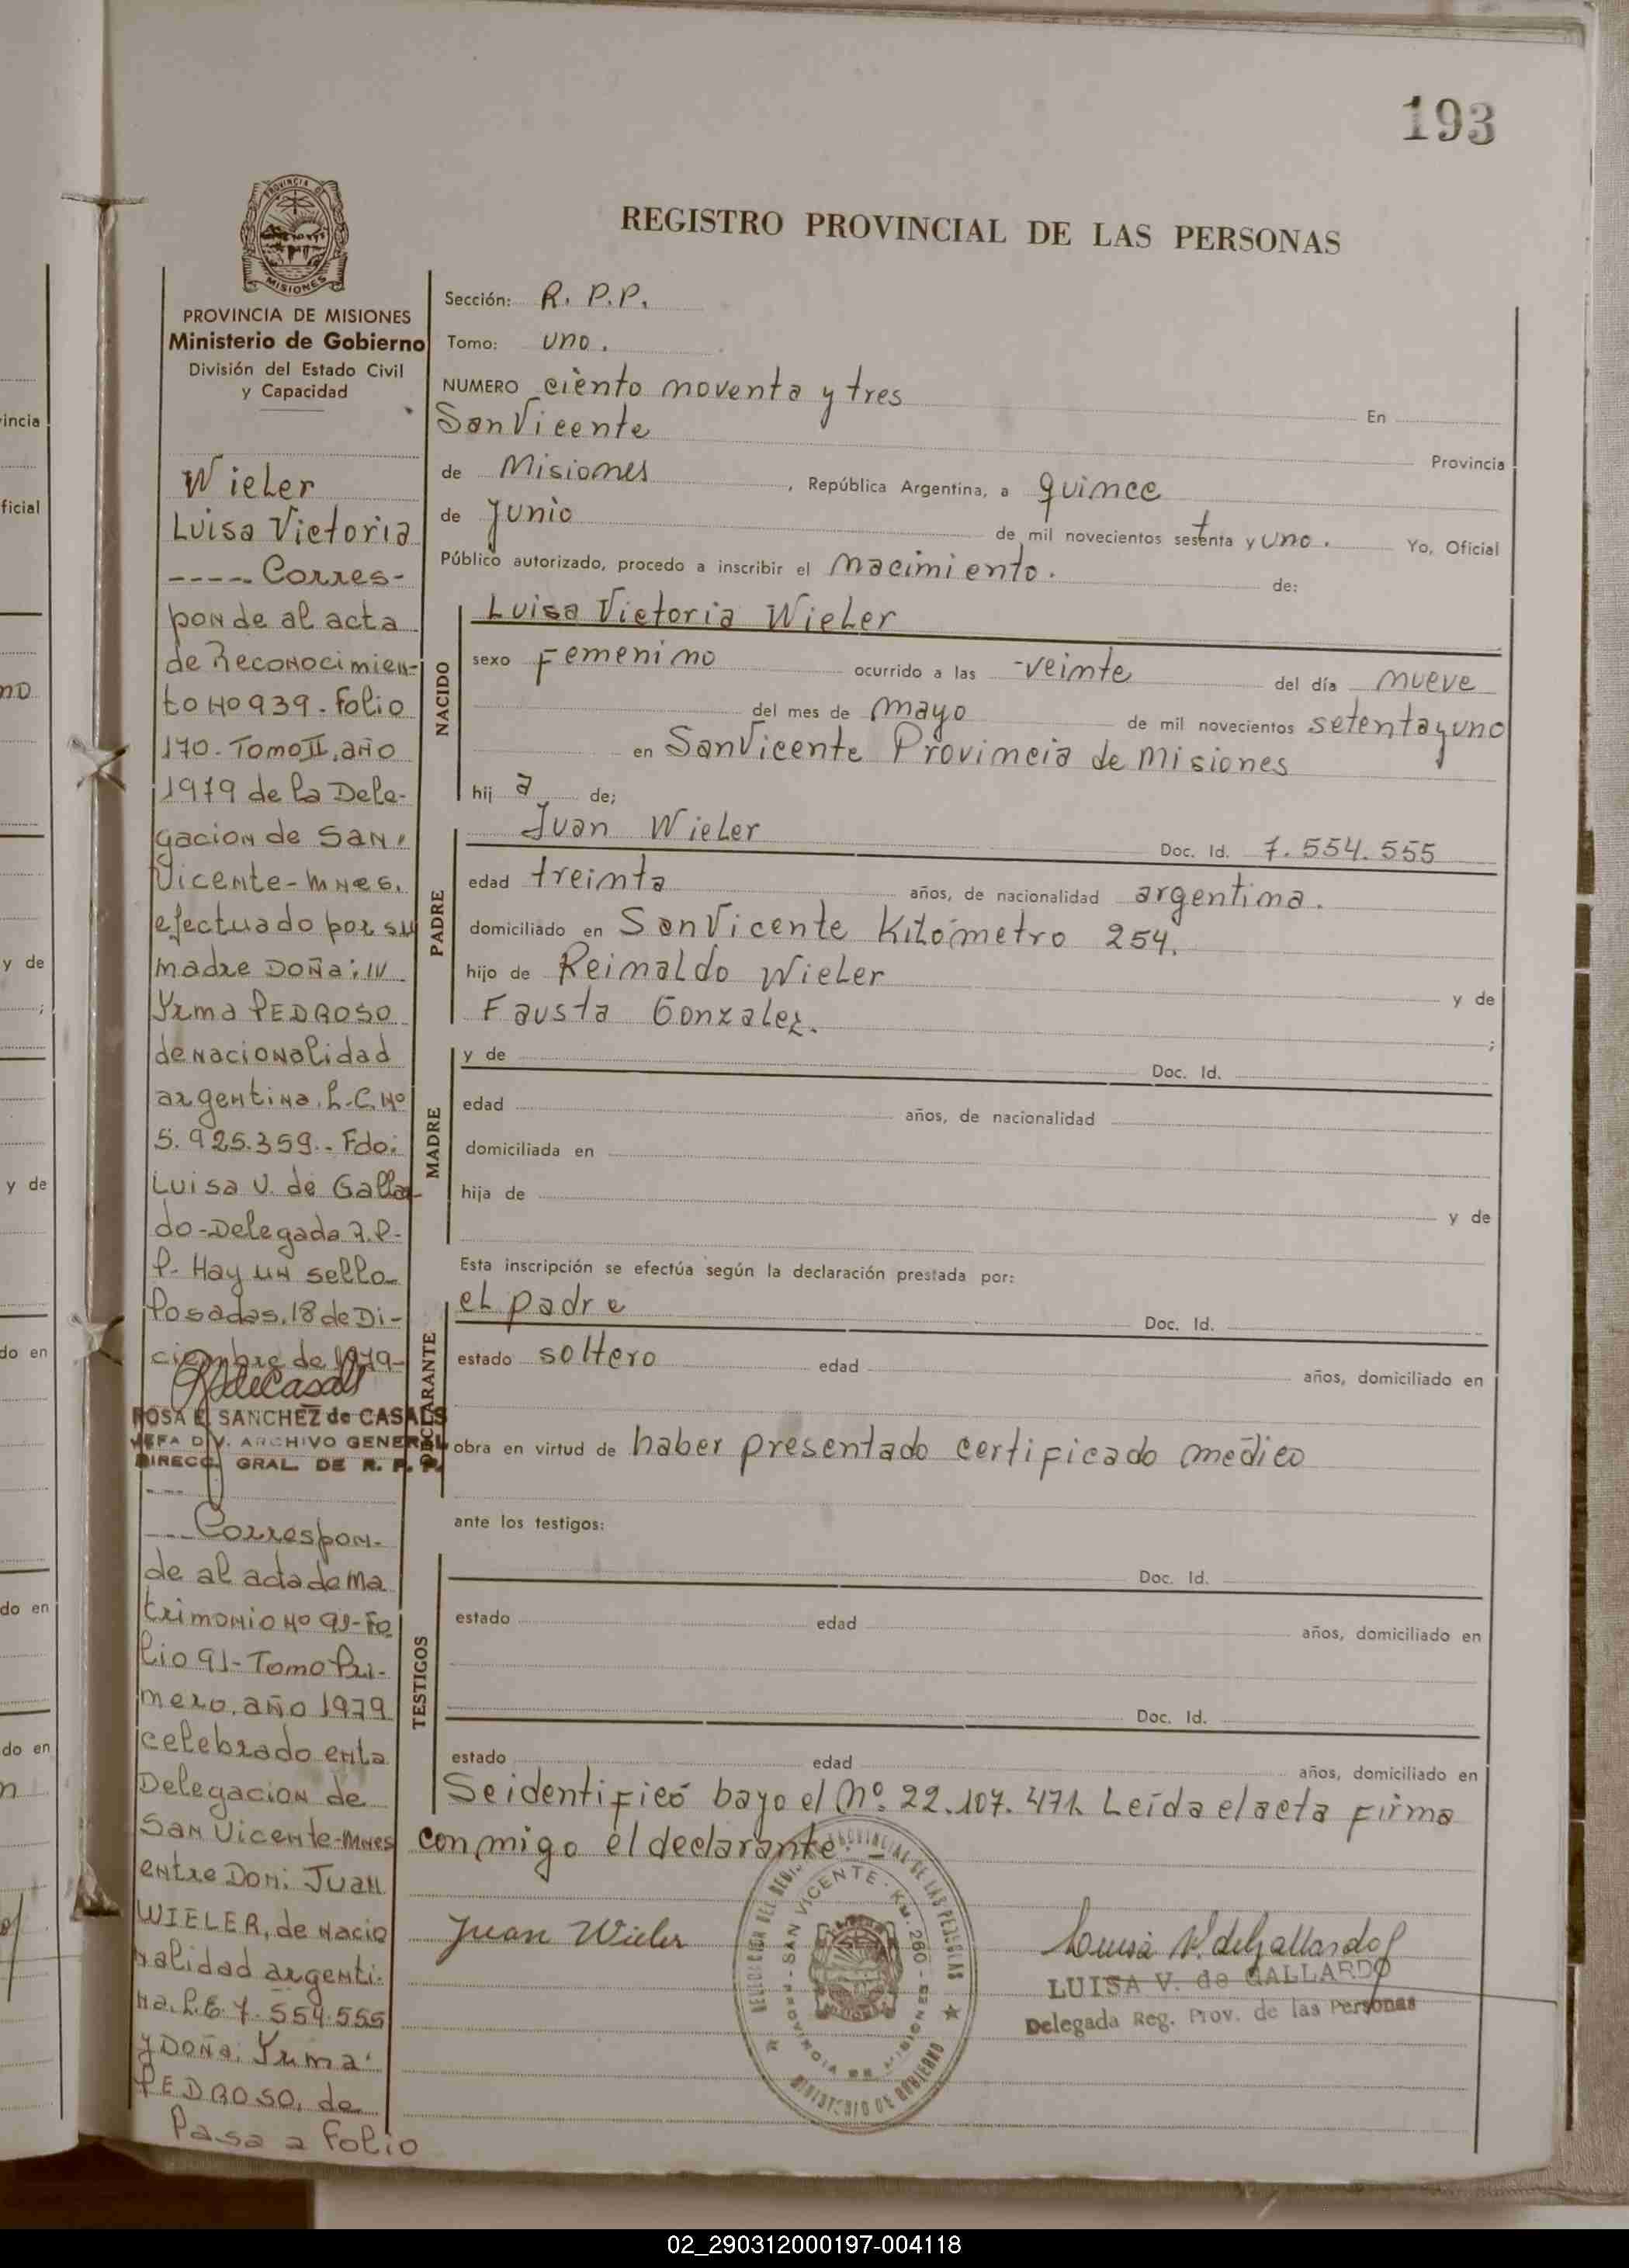 193
REGISTRO PROVINCIAL DE LAS PERSONAS
PROVINCIA DE MISIONES
PROVINCIA DE MISIONES
Ministerio de Gobierno
División del Estado Civil
y Capacidad
Wieler
Luisa Victoria
---- Corres-
ponde al acta
de Reconocimien-
to Nº 939. Folio
170. Tomo II, año
1979 de la Dele-
gacion de San
Vicente-Mnes.
efectuado por su
madre Doña:
Yrma PEDROSO
de nacionalidad
argentina. L.C. Nº
5.925.359.- Fdo:
Luisa V. de Galla
do-Delegada R.P.
P. Hay un sello
Posadas, 18 de Di-
ciembre de 1979-
ROSA E. SANCHEZ de CASALS
JEFA DIV. ARCHIVO GENERAL
DIRECC. GRAL. DE R. P. P.
--- Correspon-
de al acta de Ma
trimonio Nº 91-Fo
lio 91-Tomo Pri-
mero, año 1979
celebrado en la
Delegacion de
San Vicente-Mnes
entre Don: Juan
WIELER, de nacio
nalidad argenti-
na. L.E. 7.554.555
y Doña: Yrma
PEDROSO, de
Pasa a Folio
Sección: R. P. P.
Tomo: uno.
NUMERO ciento noventa y tres En
San Vicente Provincia
de Misiones, República Argentina, a quince
de Junio de mil novecientos setenta y uno. Yo, Oficial
Público autorizado, procedo a inscribir el nacimiento. de:
NACIDO
Luisa Victoria Wieler
sexo Femenino ocurrido a las -veinte del día nueve
del mes de mayo de mil novecientos setenta y uno
en San Vicente Provincia de Misiones
hij a de;
PADRE
Juan Wieler Doc. Id. 7.554.555
edad treinta años, de nacionalidad argentina.
domiciliado en San Vicente Kilómetro 254.
hijo de Reinaldo Wieler y de
Fausta Gonzalez. ;
MADRE
y de Doc. Id.
edad años, de nacionalidad
domiciliada en
hija de y de
Esta inscripción se efectúa según la declaración prestada por:
DECLARANTE
el padre Doc. Id.
estado soltero edad años, domiciliado en
obra en virtud de haber presentado certificado médico
ante los testigos:
TESTIGOS
Doc. Id.
estado edad años, domiciliado en
Doc. Id.
estado edad años, domiciliado en
Se identificó bajo el Nº. 22.107.471. Leída el acta firma
conmigo el declarante.
Juan Wieler
SAN VICENTE - KM. 260 -
MINISTERIO DE GOBIERNO
Luisa V. de Gallardo
LUISA V. de GALLARDO
Delegada Reg. Prov. de las Personas
vincia
ficial
no
y de
;
y de
do en
do en
do en
02_290312000197-004118